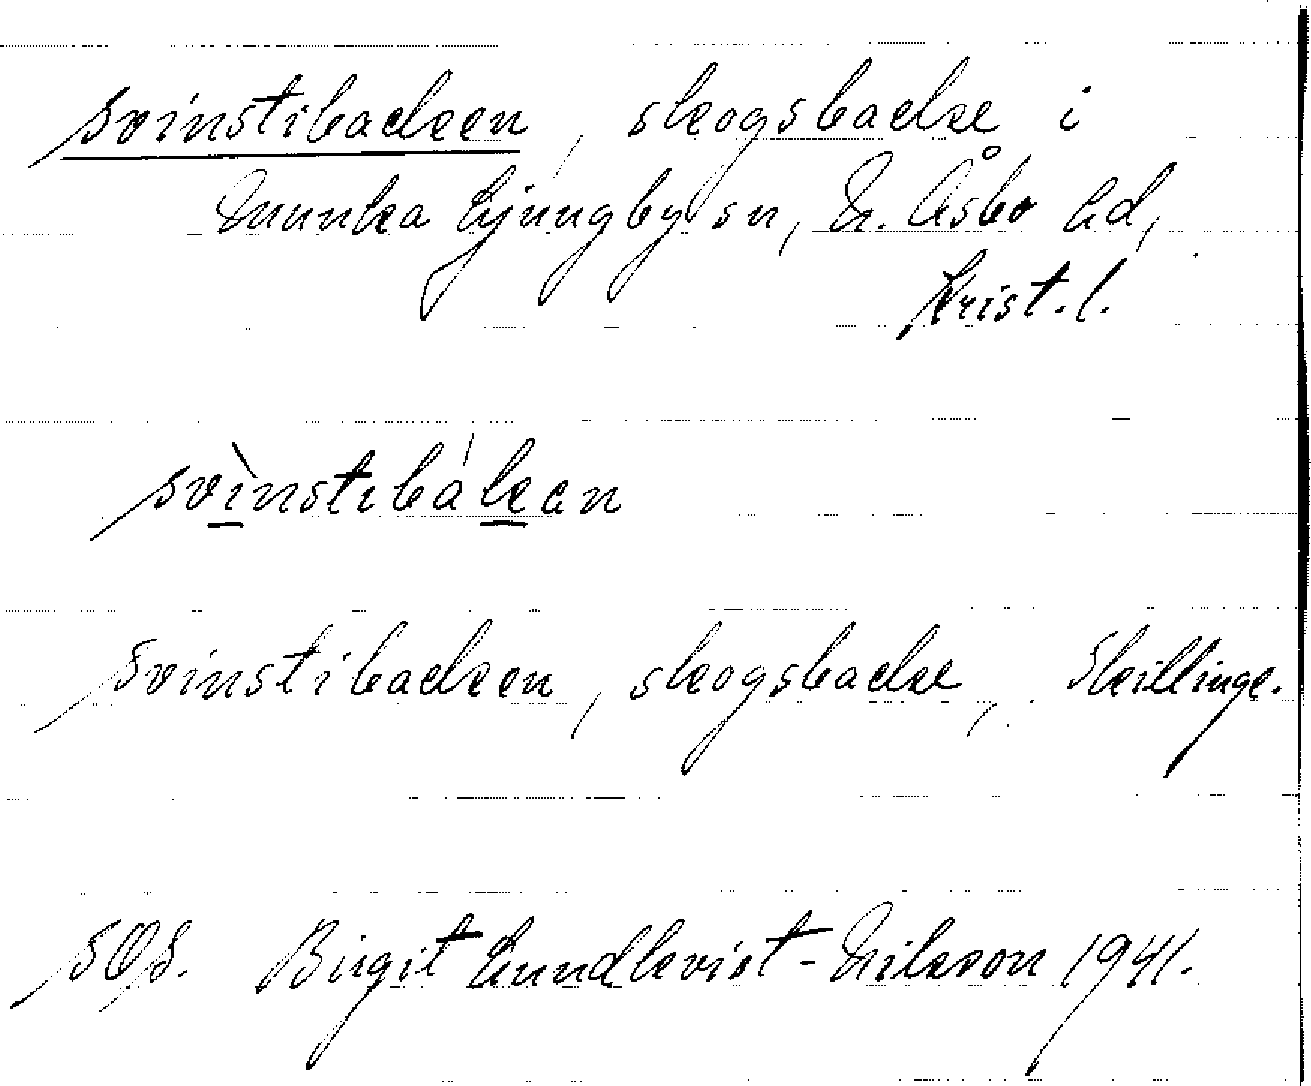 svinstibacken, skogsbacke i
Munka Ljungby sn, N. Åsbo hd,
Krist. l.
svìnstibákan
svinstibacken, skogsbacke, Skillinge.
SOS. Birgit Lundkvist-Nilsson 1941.